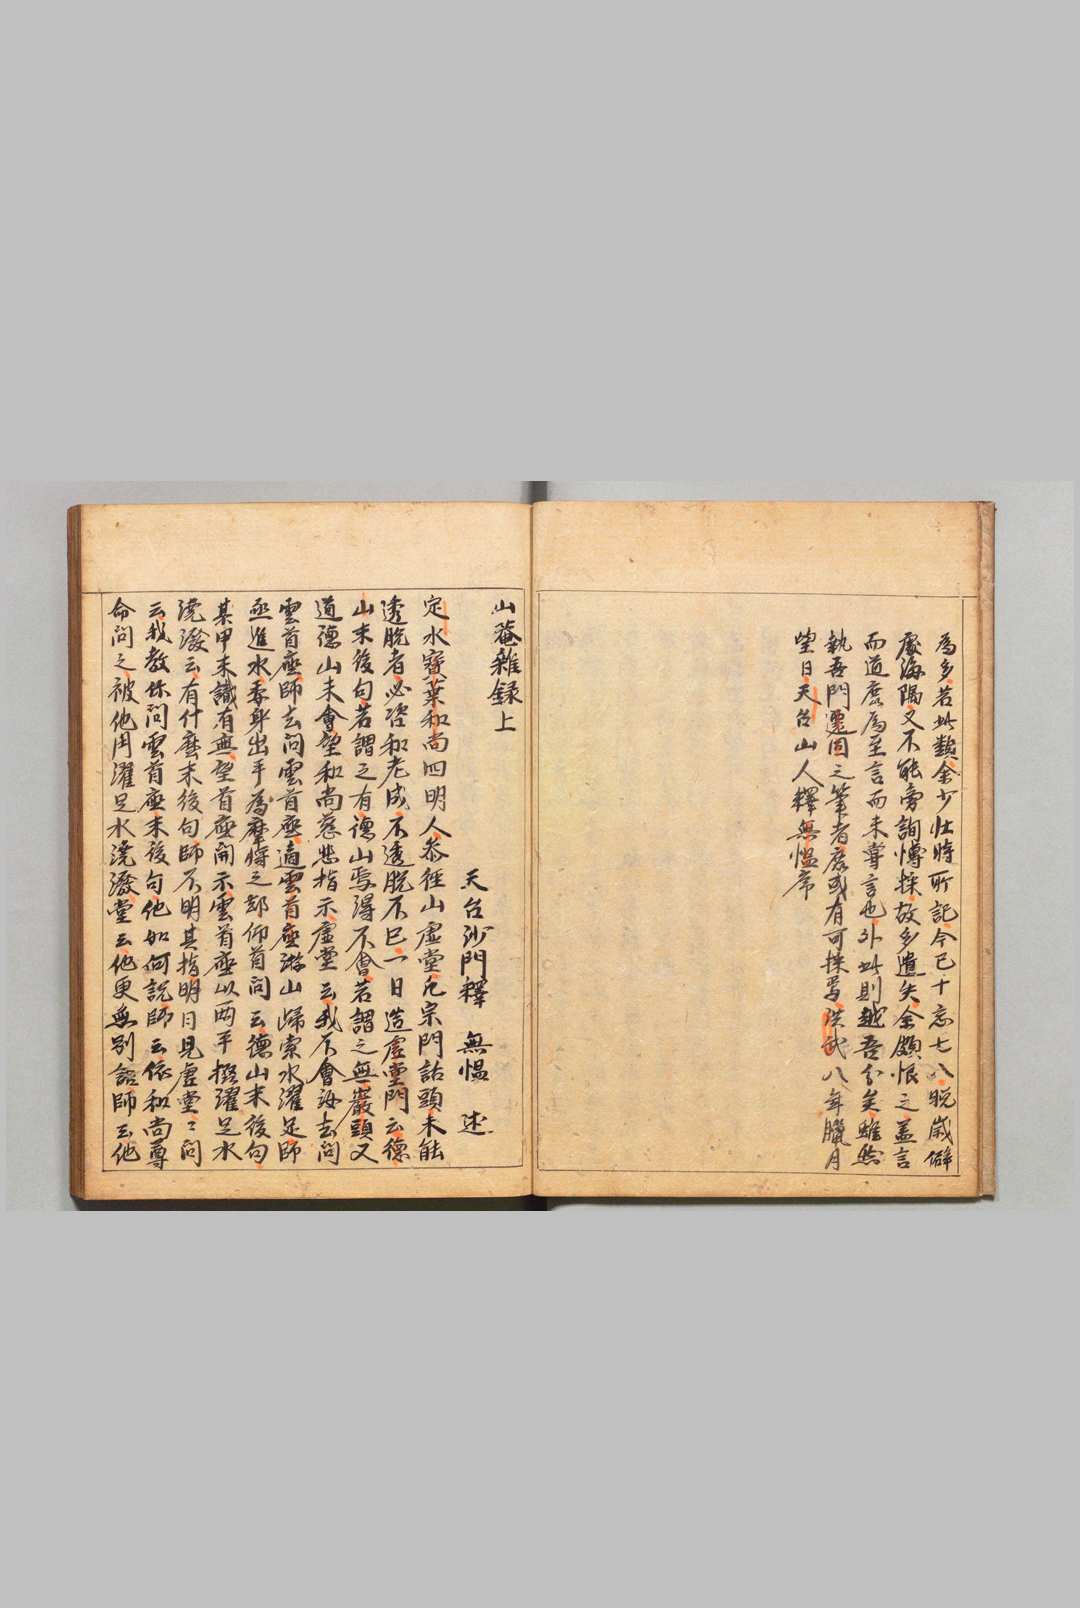 為多若此類余少壯時所記今已十忘七八晚歲僻
處海隅又不能旁詢博採故多遺失余頗恨之盖言
而道庶為至言而未嘗言也外此則越吾分矣雖然
執吾門遷固之筆者庶或有可採焉洪武八年臘月
望日天台山人釋無愠序
山菴雜録上
天台沙門釋 無愠 述
定水寶葉和尚四明人参徑山虛堂凡宗門話頭未能
透脫者必咨和老成不透脫不已一日造虛堂門云德
山末後句若謂之有德山焉得不會若謂之無巖頭又
道德山未會望和尚慈悲指示虛堂云我不會汝去問
雲首座師去問雲首座適雲首座游山歸索水濯足師
亟進水委身出手為摩捋之却仰首問云德山末後句
某甲未識有無望首座開示雲首座以两手撥濯足水
澆潑云有什麼末後句師不明其指明日見虛堂〻問
云我教你問雲首座末後句他如何說師云依和尚尊
命問之被他用濯足水澆潑堂云他更無別語師云他